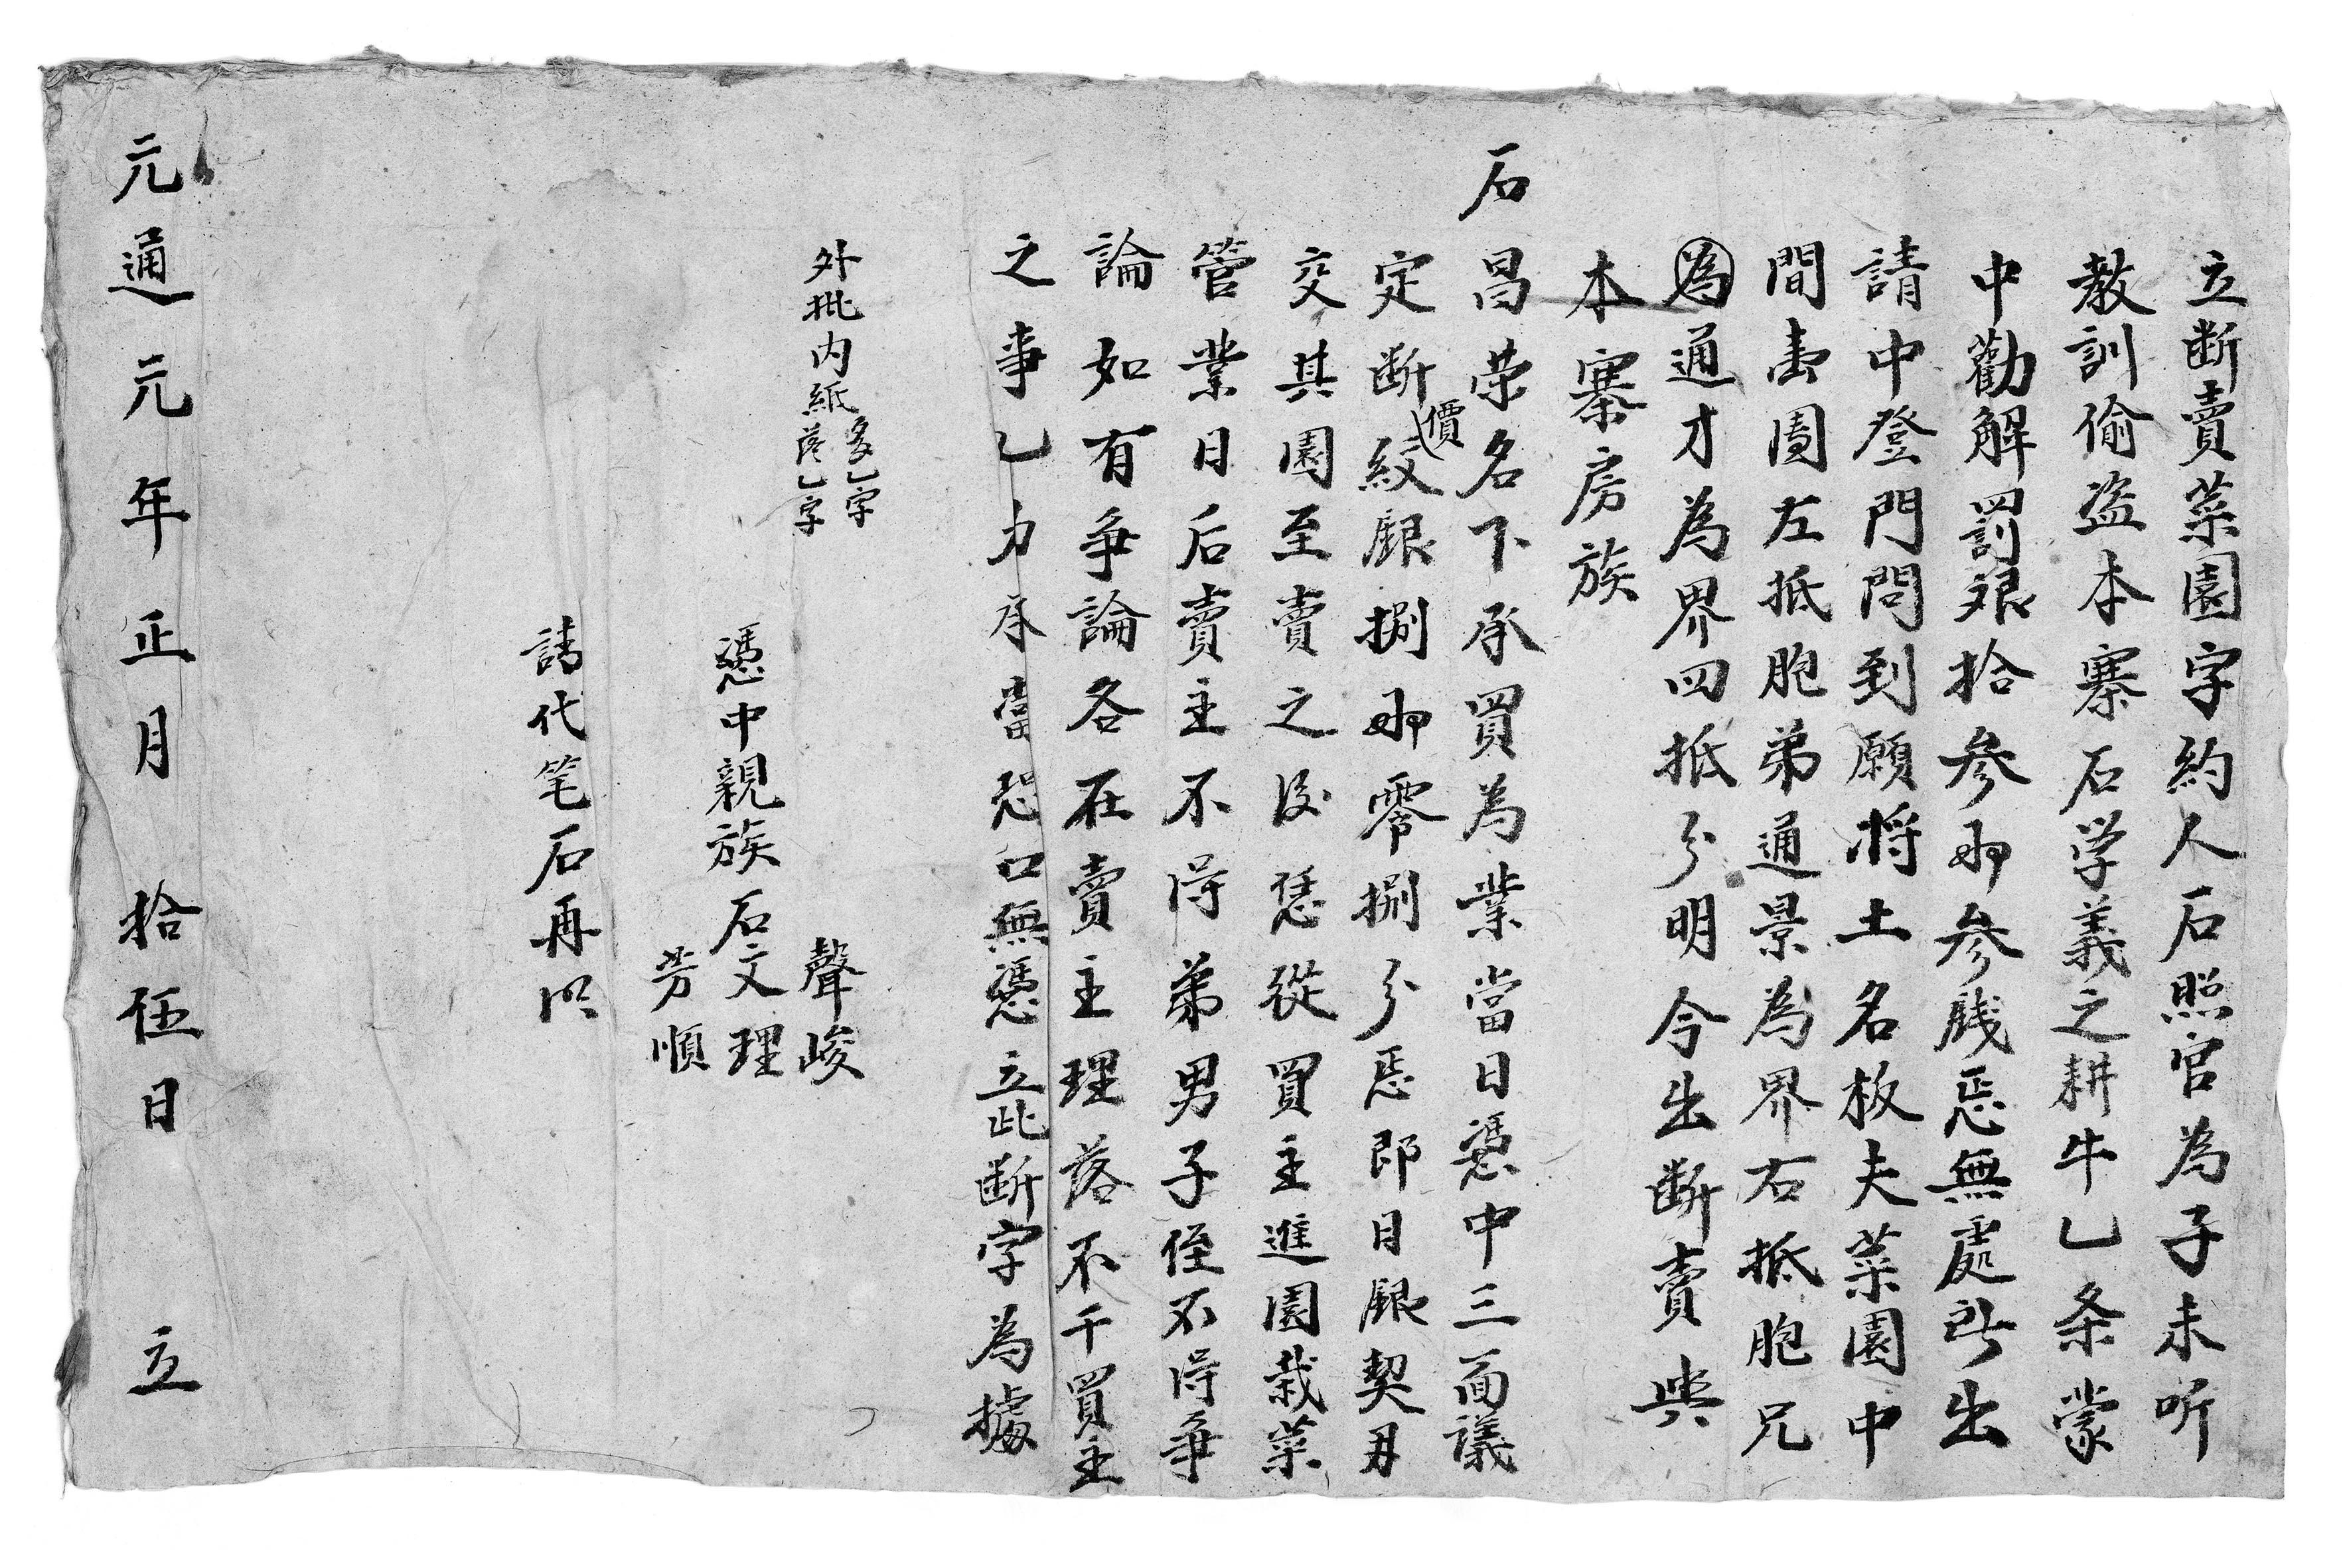 立断賣菜園字約人石照官為子未听
教訓偷盗本寨石学義之耕牛乙条蒙
中勸解罰艮拾參両參賤悪無處所出
請中登門問到願将土名板夫菜園中
間壹園左抵胞弟通景為界右抵胞兄
為通才為界四抵分明今出断賣與
本寨房族
石昌荣名下承買為業當日憑中三面議
定断價紋銀捌両零捌分悪即日銀契月
交其園至賣之後恁從買主進園栽菜
管業日后賣主不得弟男子侄不得争
論如有争論各在賣主理落不干買主
之事乙力承當恐口無憑立此断字為據
外批内紙多乙字落乙字
聲峻
憑中親族石文理
芳順
請代笔石再
元通元年正月 拾伍日 立